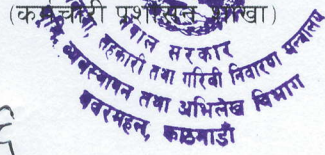 (कर्मचारी प्रशासन शाखा)
नेपाल सरकार
सहकारी तथा गरिबी निवारण मन्त्रालय
व्यवस्थापन तथा अभिलेख विभाग
बबरमहल, काठमाडौं